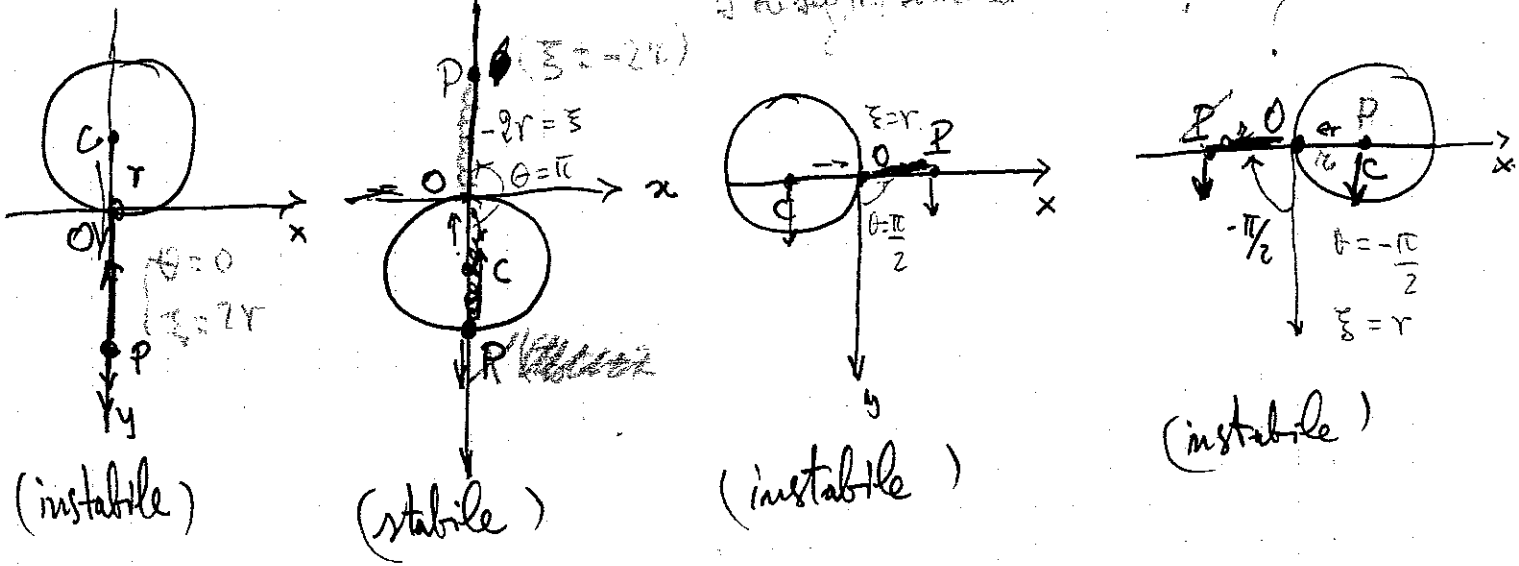 C
r
O
x
θ = 0
ξ = 2r
P
y
(instabile)
P (ξ = -2r)
-2r = ξ
O
θ = π
x
r
C
P
(stabile)
ξ = r
O
P
C
x
θ = π/2
y
(instabile)
P
O
r
P
C
x
-π/2
θ = -π/2
ξ = r
(instabile)